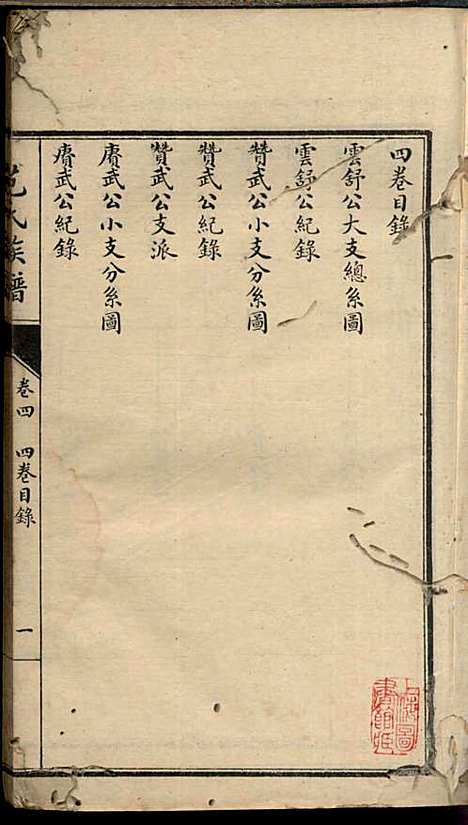 四卷目錄
雲舒公大支總系圖
雲舒公紀錄
贊武公小支分系圖
贊武公紀錄
贊武公支派
賡武公小支分系圖
賡武公紀錄
氏族譜
卷四 四卷目錄 一